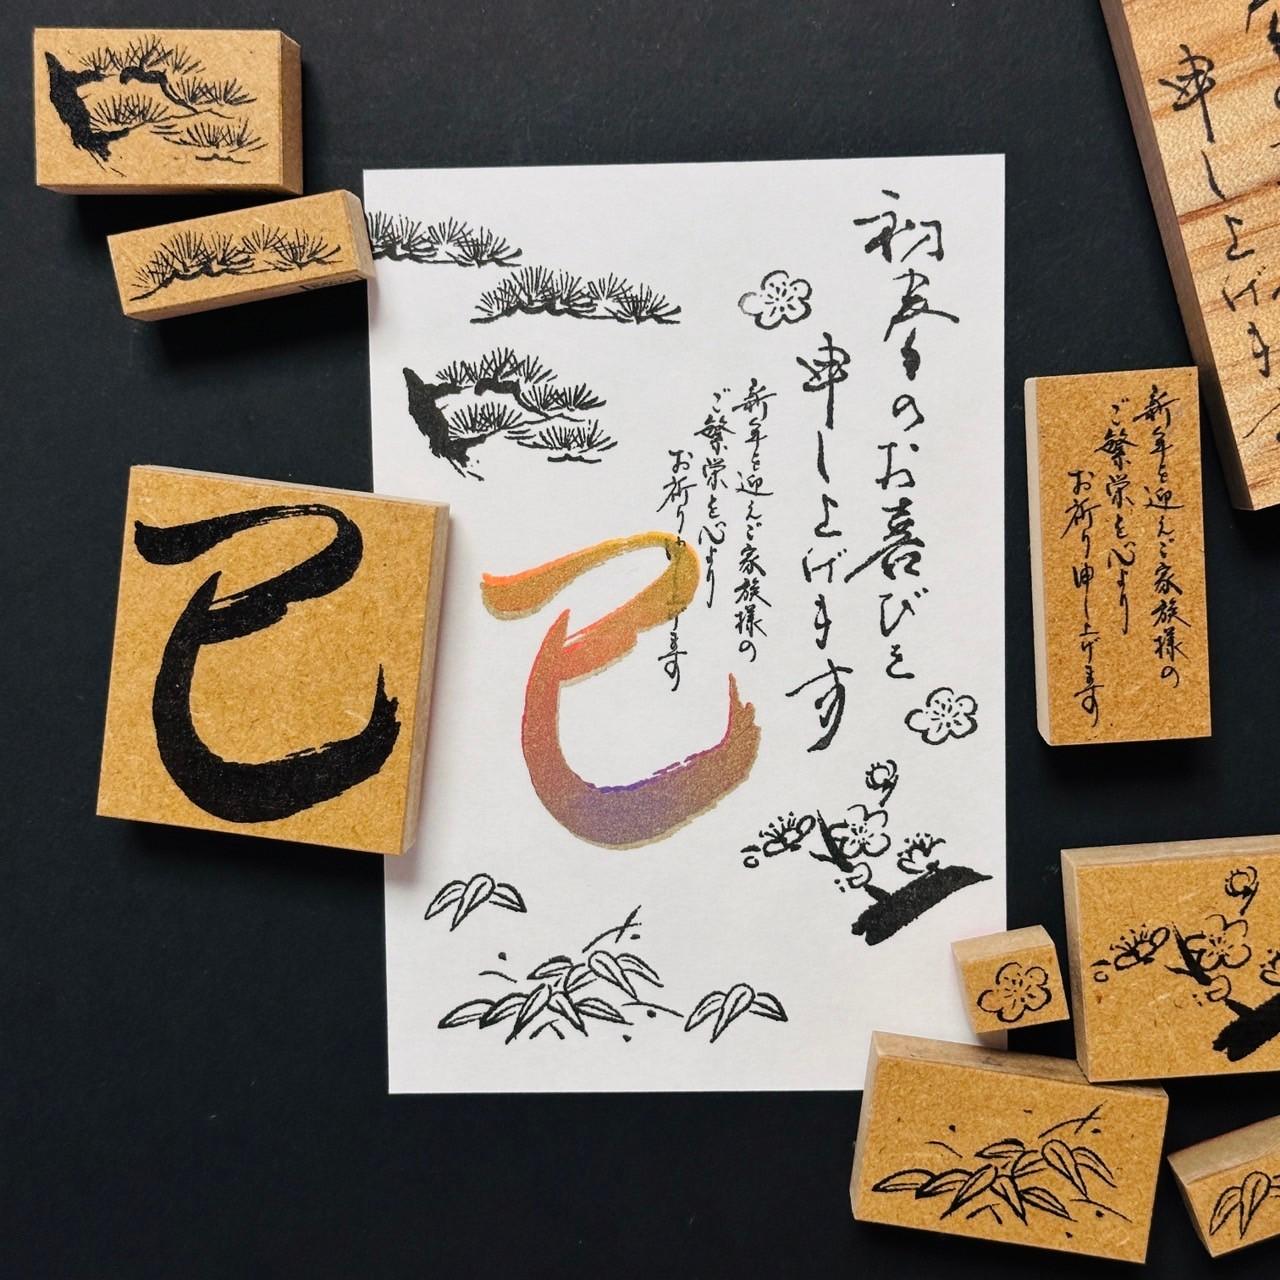 初春のお喜びを
申し上げます
新年を迎えご家族様の
ご繁栄を心より
お祈り申し上げます
巳
巳
申し上げま
新年を迎えご家族様の
ご繁栄を心より
お祈り申し上げます